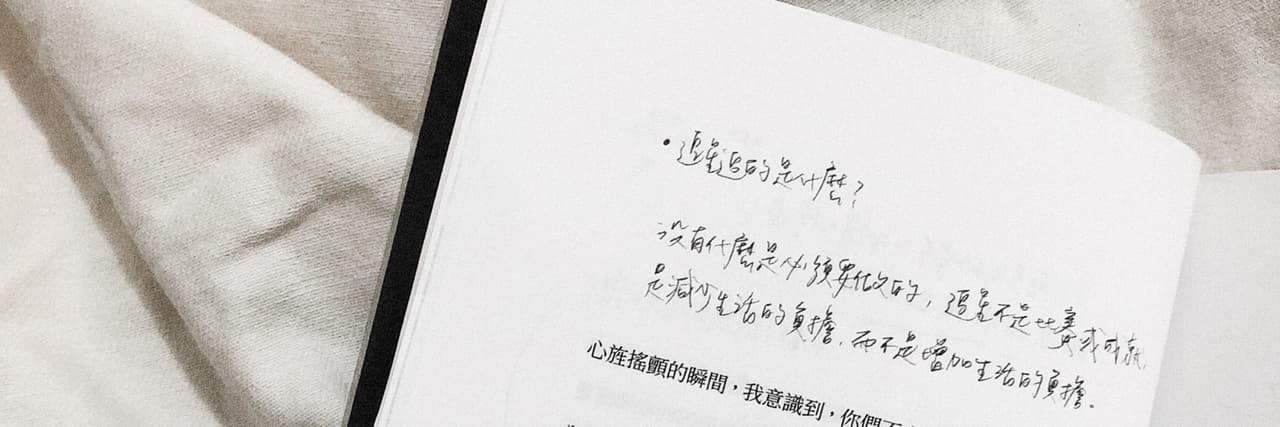 •追星追的是什麼？
沒有什麼是必須要做的，追星不是比賽或成就，
是減少生活的負擔，而不是增加生活的負擔。
心旌搖顫的瞬間，我意識到，你們不